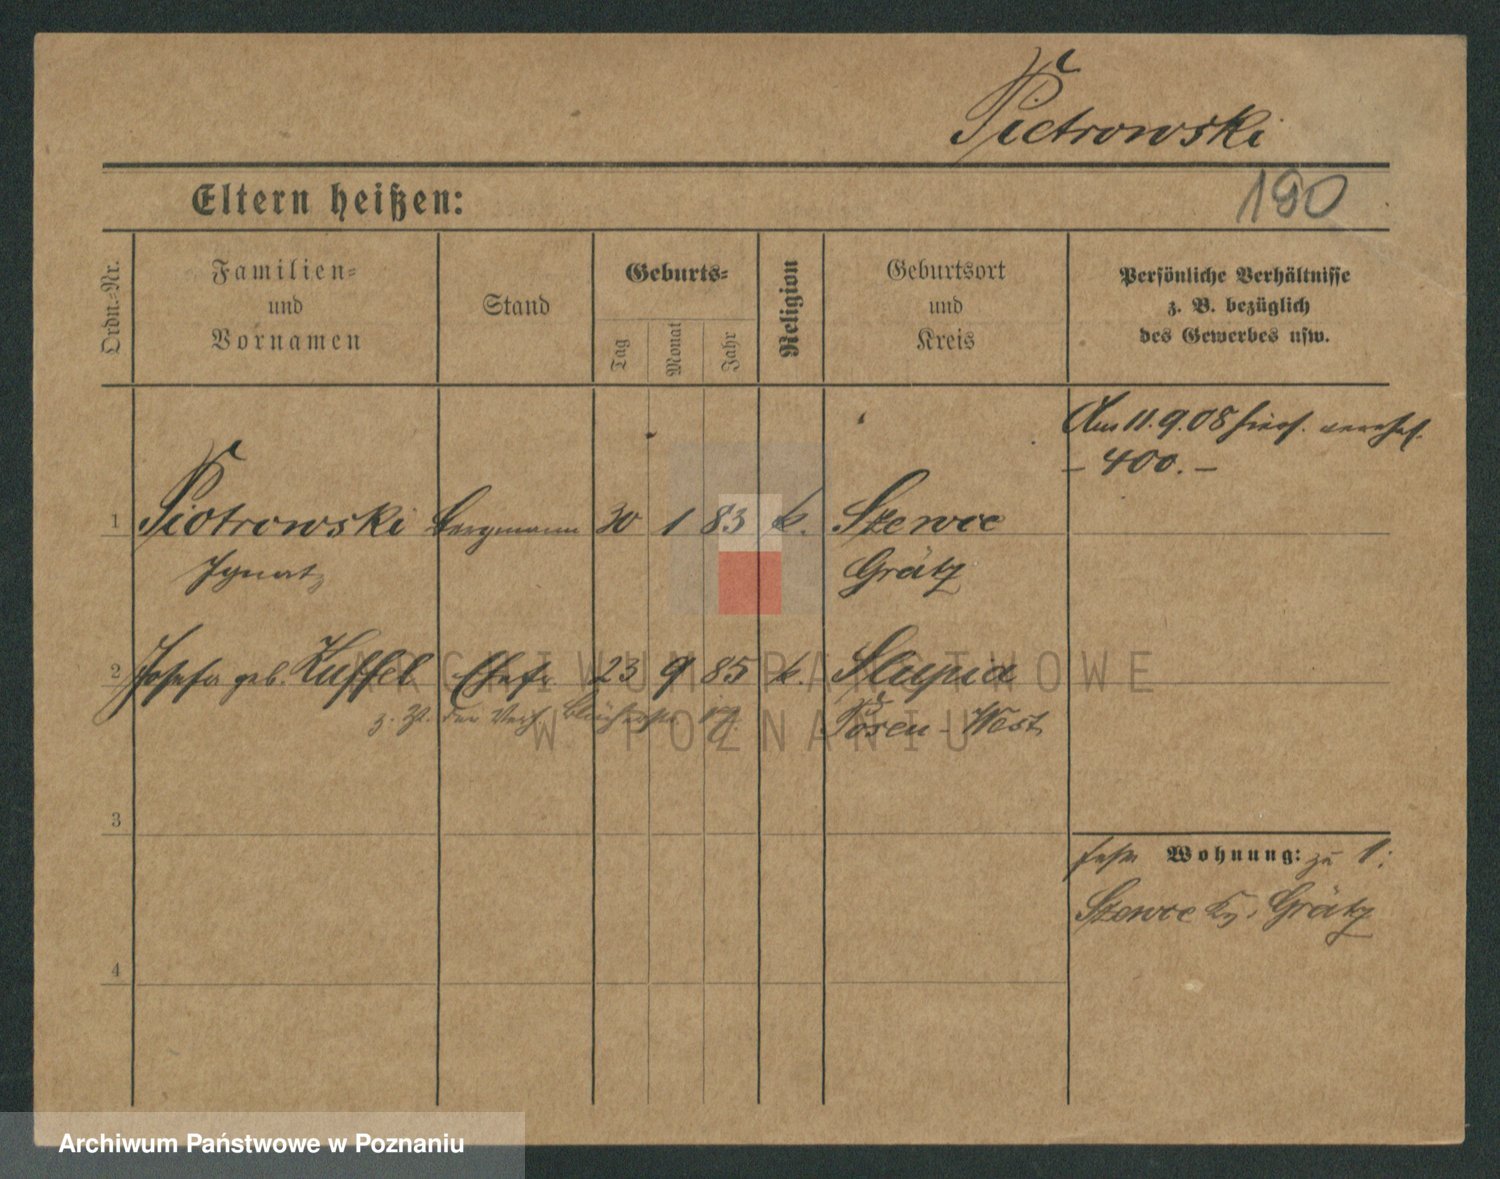 Piotrowski
190
Eltern heißen:
Ordn.-Nr.
Familien-
und
Vornamen
Stand
Geburts-
Tag
Monat
Jahr
Religion
Geburtsort
und
Kreis
Persönliche Verhältnisse
z. B. bezüglich
des Gewerbes usw.
Am 11.9.08 hies.
- 400. -
1 Piotrowski Bergmann 30 1 83 k. Szewce
Ignatz Grätz
2 Josefa geb. Kuffel Ehefr 23 9 85 k. Slupia
z. Zt. 17. Posen-West
3
frühr Wohnung: zu 1:
Szewce Kr. Grätz
4
ARCHIWUM PAŃSTWOWE
W POZNANIU
Archiwum Państwowe w Poznaniu